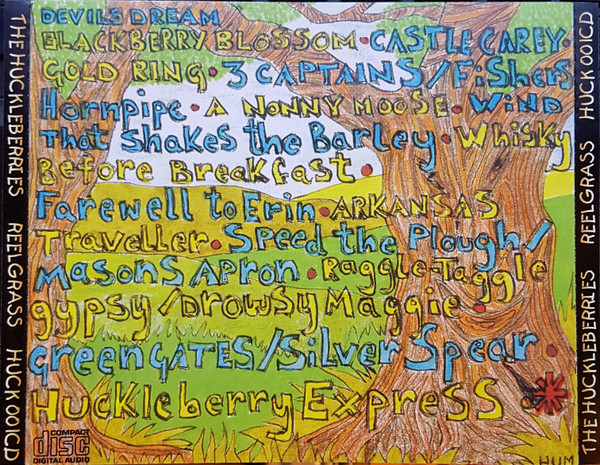 DEVILS DREAM
BLACKBERRY BLOSSOM • CASTLE CAREY •
GOLD RING • 3 CAPTAINS / FiSHERS
Hornpipe • A NONNY MOOSE • WiND
That Shakes the Barley • Whisky
Before Breakfast •
Farewell to Erin • ARKANSAS
Traveller • Speed the Plough /
MASONS APRON • Raggle-Taggle
gypsy / Drowsy Maggie •
greenGATES / SiLver Spear •
Huckleberry Express
COMPACT
disc
DIGITAL AUDIO
HUM
THE HUCKLEBERRIES REELGRASS HUCK 001CD
THE HUCKLEBERRIES REELGRASS HUCK 001CD